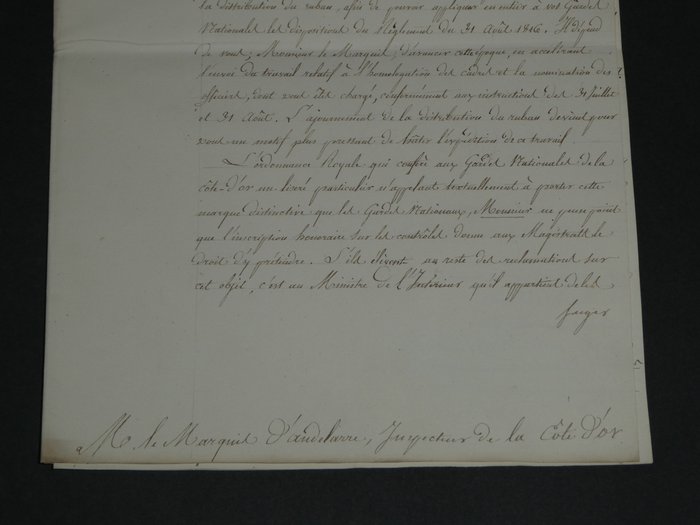 la distribution du ruban, afin de pouvoir appliquer en entier à vos Gardes
Nationales les dispositions du Réglement du 31 Août 1816. Il dépend
de vous, Monsieur le Marquis, d'avancer cette époque, en accélérant
l'envoi du travail relatif à l'homologation des cadres et la nomination des
officiers, dont vous êtes chargé, conformément aux instructions des 31 Juillet
et 31 Août. L'ajournement de la distribution du ruban devient pour
vous un motif plus pressant de hâter l'expédition de ce travail.
L'ordonnance Royale qui confère aux Gardes Nationales de la
côte-d'or un liseré particulier n'appelant textuellement à porter cette
marque distinctive que les Gardes Nationaux, Monsieur ne pense point
que l'inscription honoraire sur les contrôles donne aux Magistrats le
droit d'y prétendre. S'ils élèvent au reste des réclamations sur
cet objet, c'est au Ministre de l'Intérieur qu'il appartient de les
juger
a M. le Marquis D'andelarre, Inspecteur de la Côte D'or